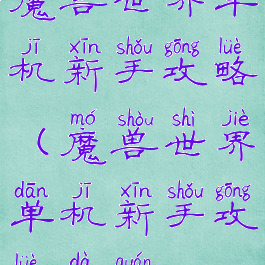 魔兽世界单
jī xīn shǒu gōng lüè
机新手攻略
mó shòu shì jiè
（魔兽世界
dān jī xīn shǒu gōng
单机新手攻
lüè dà quán